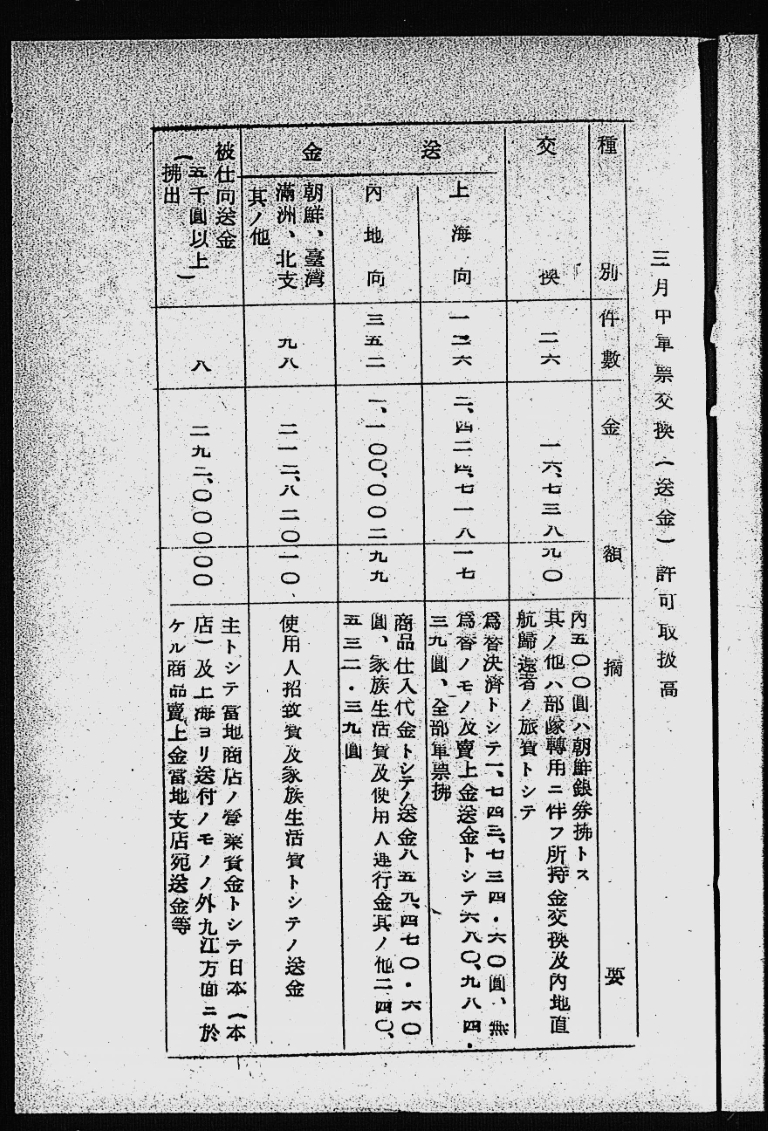 三月中軍票交換（送金）許可取扱高
種別
件數
金額
摘要
交換
二六
一六、七三八九〇
內五〇〇圓ハ朝鮮銀券拂トス
其ノ他ハ部隊轉用ニ伴フ所持金交換及內地直
航歸還者ノ旅費トシテ
送金
上海向
一二六
二、四二四、七一八一七
爲替決濟トシテ一、七四三、七三四・六〇圓、無
爲替ノモノ及賣上金送金トシテ六八〇、九八四・
三九圓、全部軍票拂
內地向
三五二
一、一〇〇、〇〇二九九
商品仕入代金トシテノ送金八五九、四七〇・六〇
圓、家族生活費及使用人進行金其ノ他二四〇、
五三二・三九圓
朝鮮、臺灣
滿洲、北支
其ノ他
九八
二一二、八二〇一〇
使用人招致費及家族生活費トシテノ送金
被仕向送金
（五千圓以上
拂出）
八
二九二、〇〇〇〇〇
主トシテ當地商店ノ營業資金トシテ日本（本
店）及上海ヨリ送付ノモノノ外九江方面ニ於
ケル商品賣上金當地支店宛送金等